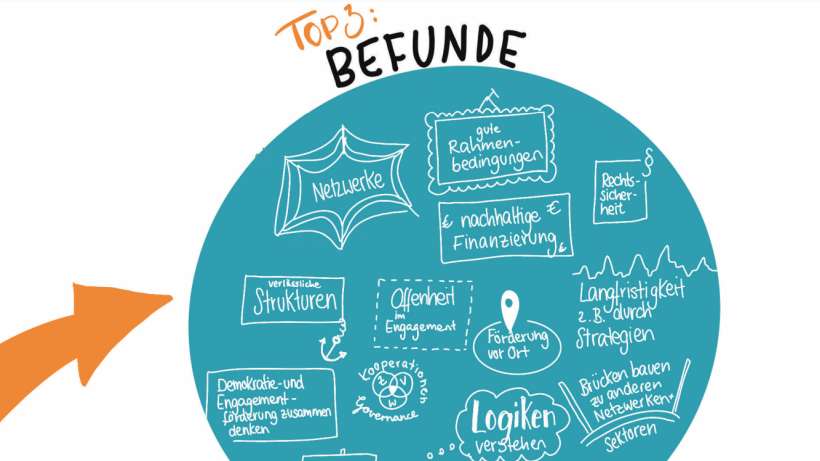 TOP 3:
BEFUNDE
Netzwerke
gute
Rahmen-
bedingungen
Rechts-
sicher-
heit
§
€ nachhaltige €
Finanzierung €
verlässliche
Strukturen
Offenheit
im
Engagement
Förderung
vor Ort
Langfristigkeit
z.B. durch
Strategien
Demokratie-und
Engagement-
förderung zusammen
denken
Kooperationen
Z V
W
Governance
Logiken
verstehen
Brücken bauen
zu anderen
Netzwerken+
Sektoren